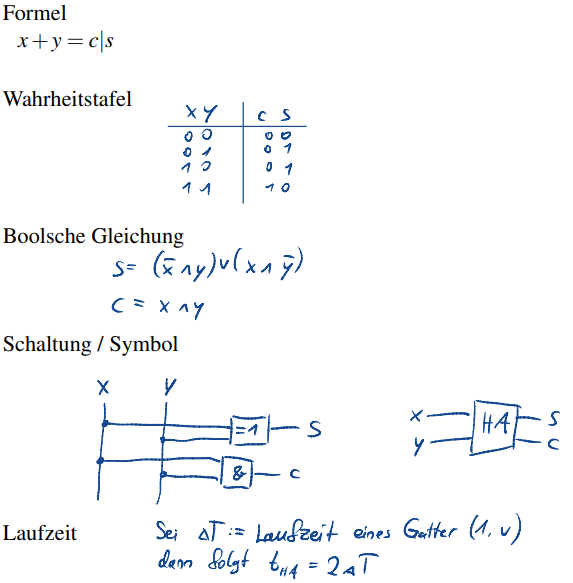 Formel
x+y=c|s
Wahrheitstafel
x y | c s
0 0 | 0 0
0 1 | 0 1
1 0 | 0 1
1 1 | 1 0
Boolsche Gleichung
s= (x̄ ∧ y) ∨ (x ∧ ȳ)
c = x ∧ y
Schaltung / Symbol
x y
=1 s
& c
x HA s
y c
Laufzeit
Sei ΔT := Laufzeit eines Gatter (∧, ∨)
dann folgt t_HA = 2ΔT